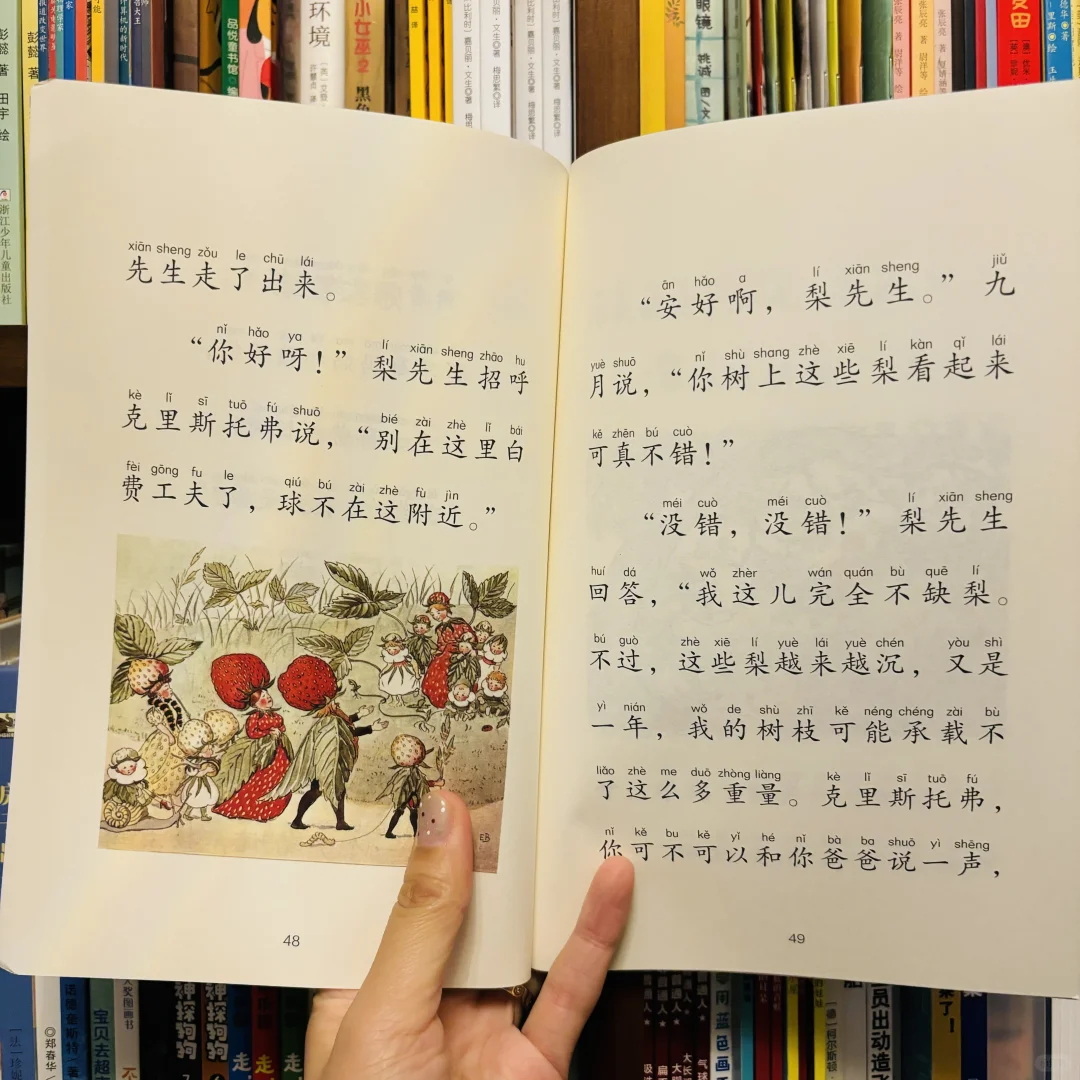 xiān sheng zǒu le chū lái
先生走了出来。
nǐ hǎo ya lí xiān sheng zhāo hu
“你好呀！”梨先生招呼
kè lǐ sī tuō fú shuō bié zài zhè lǐ bái
克里斯托弗说，“别在这里白
fèi gōng fu le qiú bú zài zhè fù jìn
费工夫了，球不在这附近。”
EB
48
ān hǎo a lí xiān sheng jiǔ
“安好啊，梨先生。”九
yuè shuō nǐ shù shang zhè xiē lí kàn qǐ lái
月说，“你树上这些梨看起来
kě zhēn bú cuò
可真不错！”
méi cuò méi cuò lí xiān sheng
“没错，没错！”梨先生
huí dá wǒ zhèr wán quán bù quē lí
回答，“我这儿完全不缺梨。
bú guò zhè xiē lí yuè lái yuè chén yòu shì
不过，这些梨越来越沉，又是
yì nián wǒ de shù zhī kě néng chéng zài bù
一年，我的树枝可能承载不
liǎo zhè me duō zhòng liàng kè lǐ sī tuō fú
了这么多重量。克里斯托弗，
nǐ kě bu kě yǐ hé nǐ bà ba shuō yì shēng
你可不可以和你爸爸说一声，
49
彭懿 著
田宇 绘
浙江少年儿童出版社
品悦童书馆
环境
小女巫
眼镜
姚诚 图/文
张辰亮 著 尉洋等 绘
郑春华
宝贝去超
大奖图画书
神探狗狗
神探狗狗